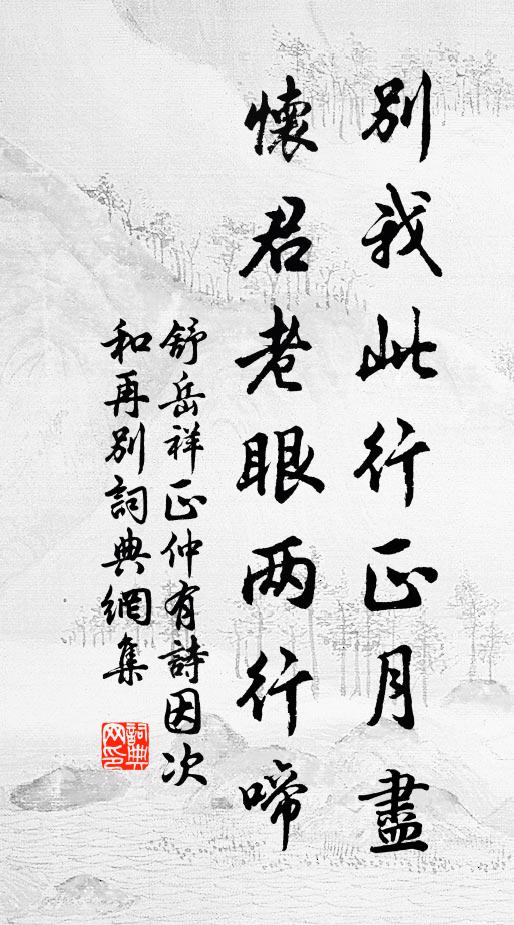 別我此行正月盡
懷君老眼两行啼
舒岳祥正仲有詩因次
和再別詞典網集
詞典
网印